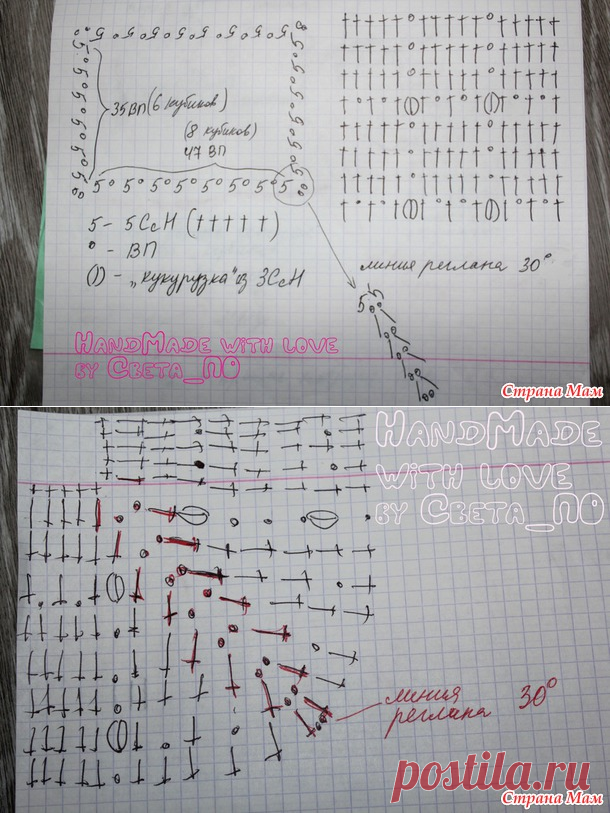 35ВП (6 кубиков)
(8 кубиков)
47 ВП
5 5 5 5 5 5 5 5
5 - 5 СсН (†††††)
° - ВП
() - "кукурузка" из 3СсН
линия реглана 30°
5 5
HandMade with love
by Света_ПО
Страна Мам
HandMade
with love
by Света_ПО
линия
реглана 30°
postila.ru
Страна Мам